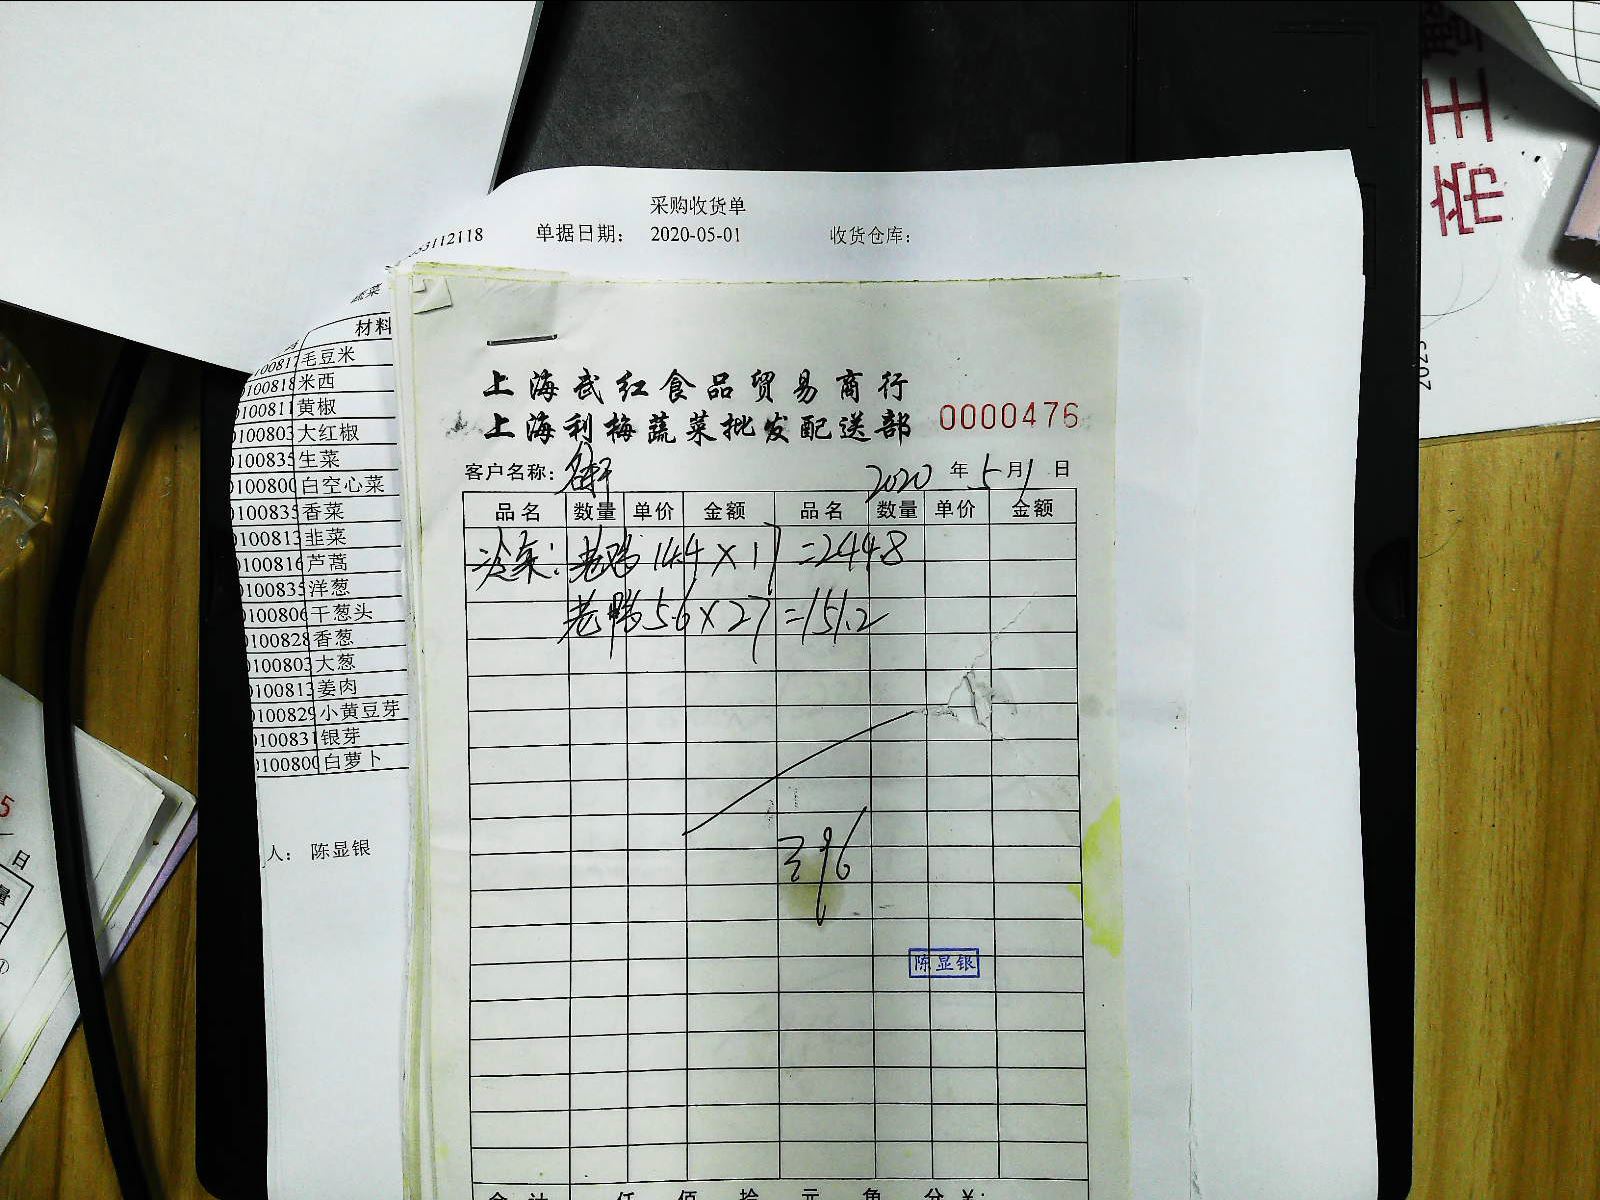 采购收货单
53112118 单据日期： 2020-05-01 收货仓库：
蔬菜
材料
毛豆米
米西
黄椒
0100803 大红椒
0100835 生菜
0100800 白空心菜
0100835 香菜
0100813 韭菜
0100816 芦蒿
0100835 洋葱
0100806 干葱头
0100828 香葱
0100803 大葱
0100813 姜肉
0100829 小黄豆芽
0100831 银芽
0100800 白萝卜
人： 陈显银
上海武红食品贸易商行
上海利梅蔬菜批发配送部 0000476
客户名称： 2020 年 5 月 1 日
品名 数量 单价 金额 品名 数量 单价 金额
冷菜： 老鸭 14.4×17=244.8
老鸭 5.6×27=151.2
396
陈显银
合计 仟 佰 拾 元 角 分 ¥：
帝王
6707
5
日
量